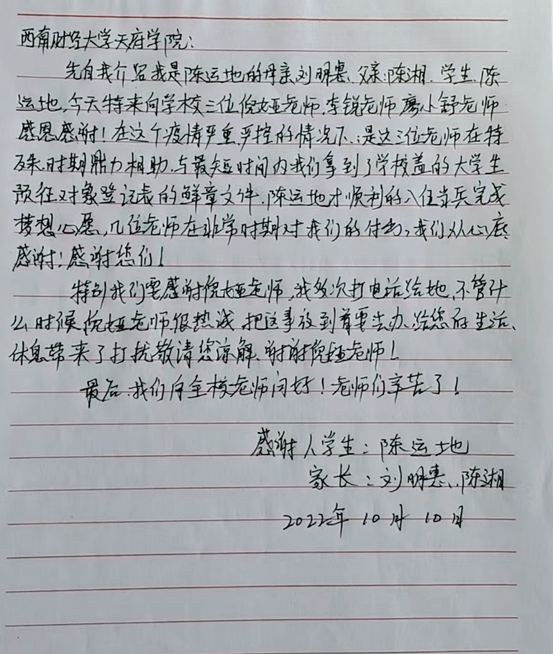 西南财经大学天府学院：
先自我介绍我是陈运地的母亲刘明惠、父亲：陈湘、学生、陈
运地，今天特来向学校三位倪娅老师、李锐老师廖小舒老师
感恩感谢！在这个疫情严重严控的情况下、是这三位老师在特
殊时期鼎力相助、与最短时间内我们拿到了学校盖的大学生
预征对象登记表的鲜章文件、陈运地才顺利的入住当兵完成
梦想心愿、几位老师在非常时期对我们的付出，我们从心底
感谢！感谢您们！
特别我们要感谢倪娅老师，我多次打电话给她，不管什
么时候倪娅老师很热诚、把这事放到首要去办、给您的生活、
休息带来了打扰敬请您谅解、谢谢倪娅老师！
最后、我们向全校老师问好！老师们辛苦了！
感谢人学生：陈运地
家长：刘明惠、陈湘
2022年10月10日